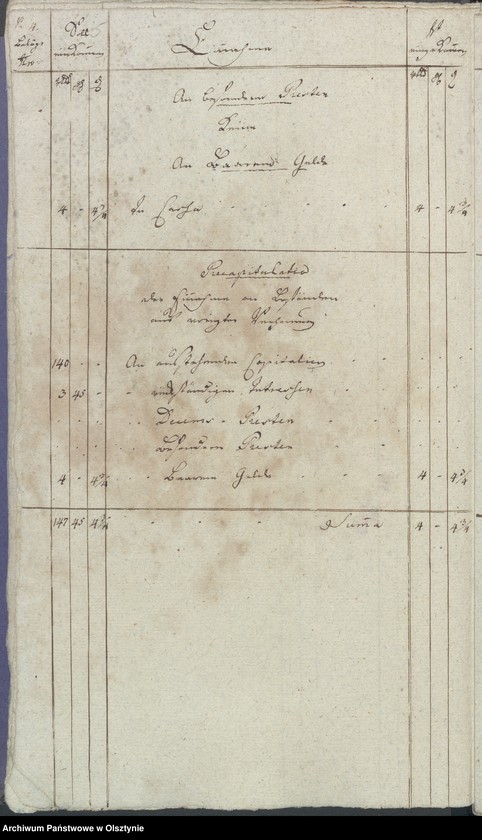 4.
Belags
No.
Soll
einkommen
Einnahme
Ist
eingekommen
rtl gr ₰
rtl gr ₰
An besondern Resten
Keine
An Baarem Gelde
4 - 4 3/4 In Cassa 4 - 4 3/4
Recapitulatio
der Einnahme an Beständen
aus voriger Rechnung
140 - - An ausstehenden Capitalien
3 45 - - rückständigen Intressen
Decems - Resten
Besondern Resten
4 - 4 3/4 - Baarem Gelde 4 - 4 3/4
147 45 4 3/4 Summa 4 - 4 3/4
Archiwum Państwowe w Olsztynie